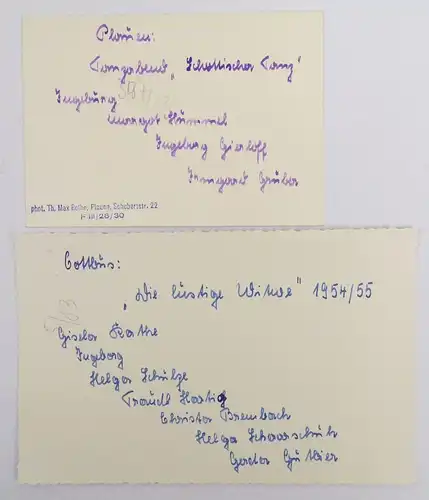 Plauen:
Tanzabend „Schottischer Tanz"
Ingeburg
Margot Hummel
Ingeborg Gierloff
Irmgard Gruber
phot. Th. Max Esche, Plauen, Schoberstr. 22
Cottbus:
„Die lustige Witwe" 1954/55
Gisela Rathe
Ingeborg
Helga Schulze
Traudl Hartig
Christa Brembach
Helga Schaarschuh
Gerda Güttler